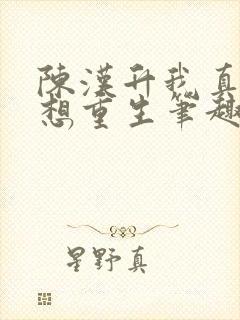 陳漢升我真
想重生筆趣
星野真